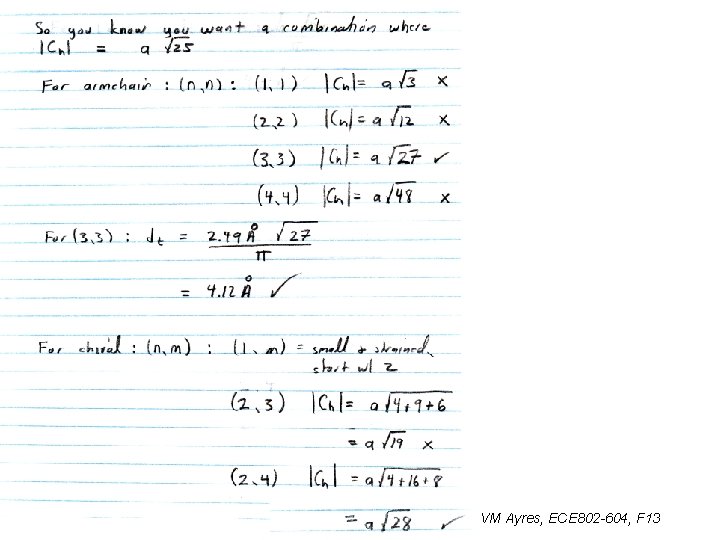 So you know you want a combination where
|Ch| = a √25
For armchair : (n,n) : (1,1) |Ch| = a√3 x
(2,2) |Ch| = a √12 x
(3,3) |Ch| = a √27 ✓
(4,4) |Ch| = a√48 x
For (3,3) : dt = 2.49 Å √27
π
= 4.12 Å ✓
For chiral : (n,m) : (1,m) = small & strained,
start w/ 2
(2,3) |Ch| = a√4+9+6
= a √19 x
(2,4) |Ch| = a√4+16+8
= a √28 ✓
VM Ayres, ECE 802-604, F13